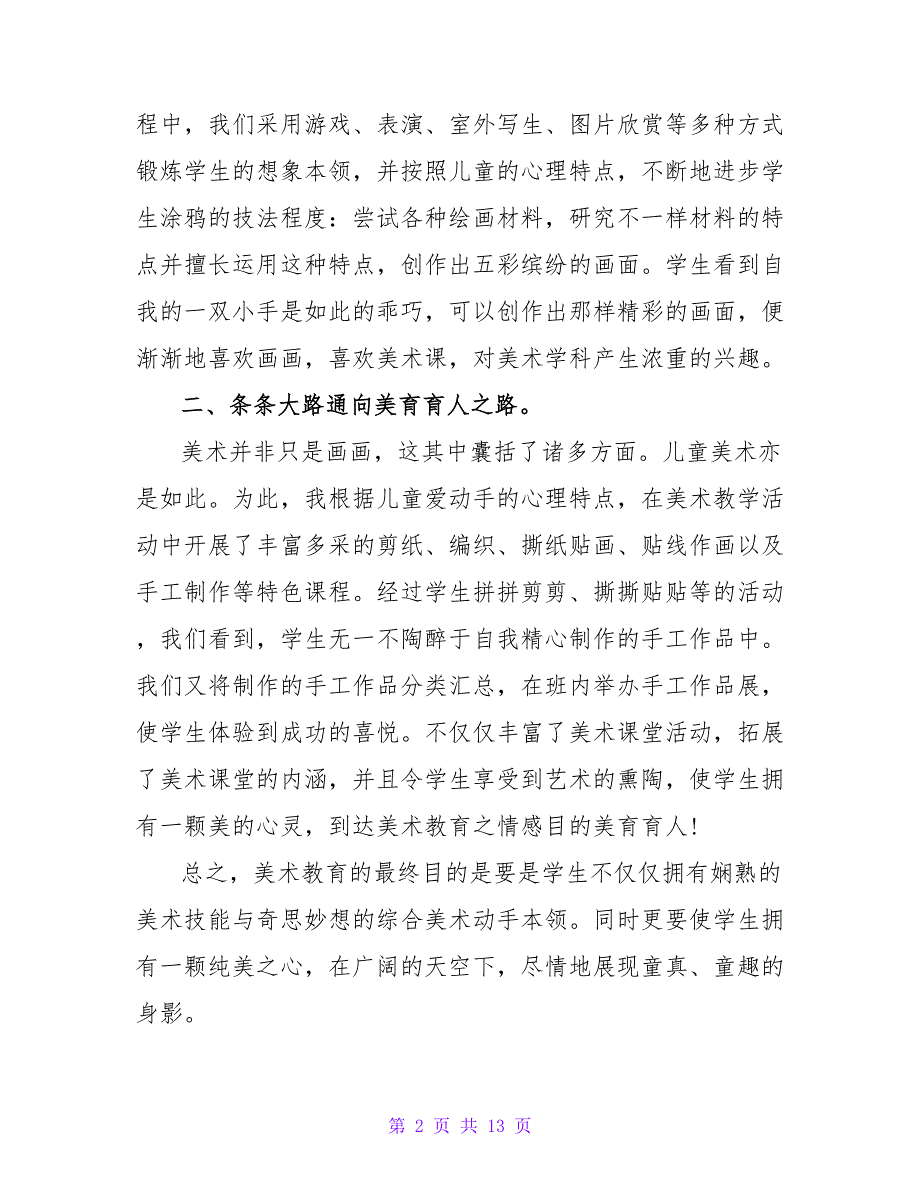 程中，我们采用游戏、表演、室外写生、图片欣赏等多种方式
锻炼学生的想象本领，并按照儿童的心理特点，不断地进步学
生涂鸦的技法程度：尝试各种绘画材料，研究不一样材料的特
点并擅长运用这种特点，创作出五彩缤纷的画面。学生看到自
我的一双小手是如此的乖巧，可以创作出那样精彩的画面，便
渐渐地喜欢画画，喜欢美术课，对美术学科产生浓重的兴趣。
二、条条大路通向美育育人之路。
美术并非只是画画，这其中囊括了诸多方面。儿童美术亦
是如此。为此，我根据儿童爱动手的心理特点，在美术教学活
动中开展了丰富多采的剪纸、编织、撕纸贴画、贴线作画以及
手工制作等特色课程。经过学生拼拼剪剪、撕撕贴贴等的活动
，我们看到，学生无一不陶醉于自我精心制作的手工作品中。
我们又将制作的手工作品分类汇总，在班内举办手工作品展，
使学生体验到成功的喜悦。不仅仅丰富了美术课堂活动，拓展
了美术课堂的内涵，并且令学生享受到艺术的熏陶，使学生拥
有一颗美的心灵，到达美术教育之情感目的美育育人!
总之，美术教育的最终目的是要是学生不仅仅拥有娴熟的
美术技能与奇思妙想的综合美术动手本领。同时更要使学生拥
有一颗纯美之心，在广阔的天空下，尽情地展现童真、童趣的
身影。
第 2 页 共 13 页